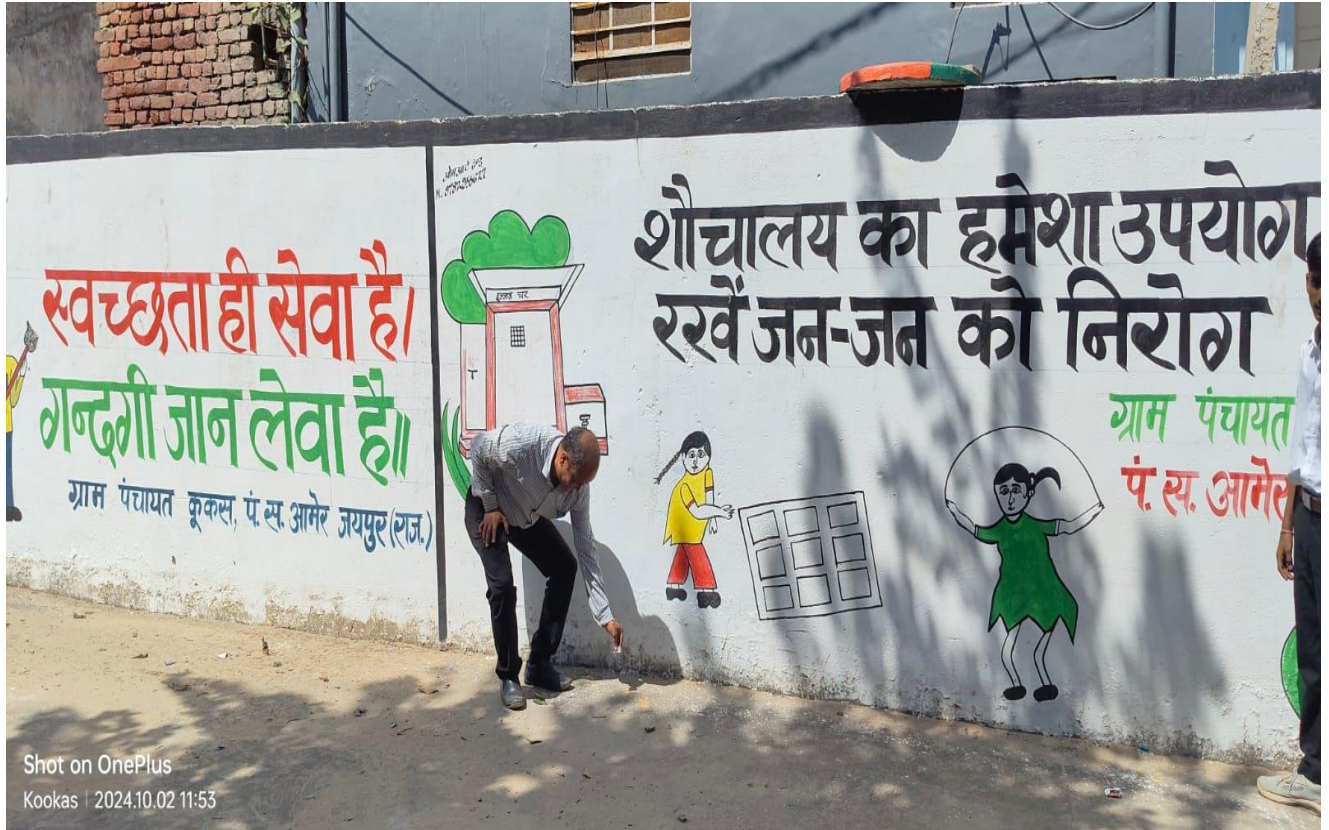 स्वच्छता ही सेवा है।
गन्दगी जान लेवा है॥
ग्राम पंचायत कूकस, पं. स. आमेर जयपुर (राज.)
इज्जत घर
शौचालय का हमेशा उपयोग
रखें जन-जन को निरोग
ग्राम पंचायत
पं. स. आमेर
Shot on OnePlus
Kookas | 2024.10.02 11:53